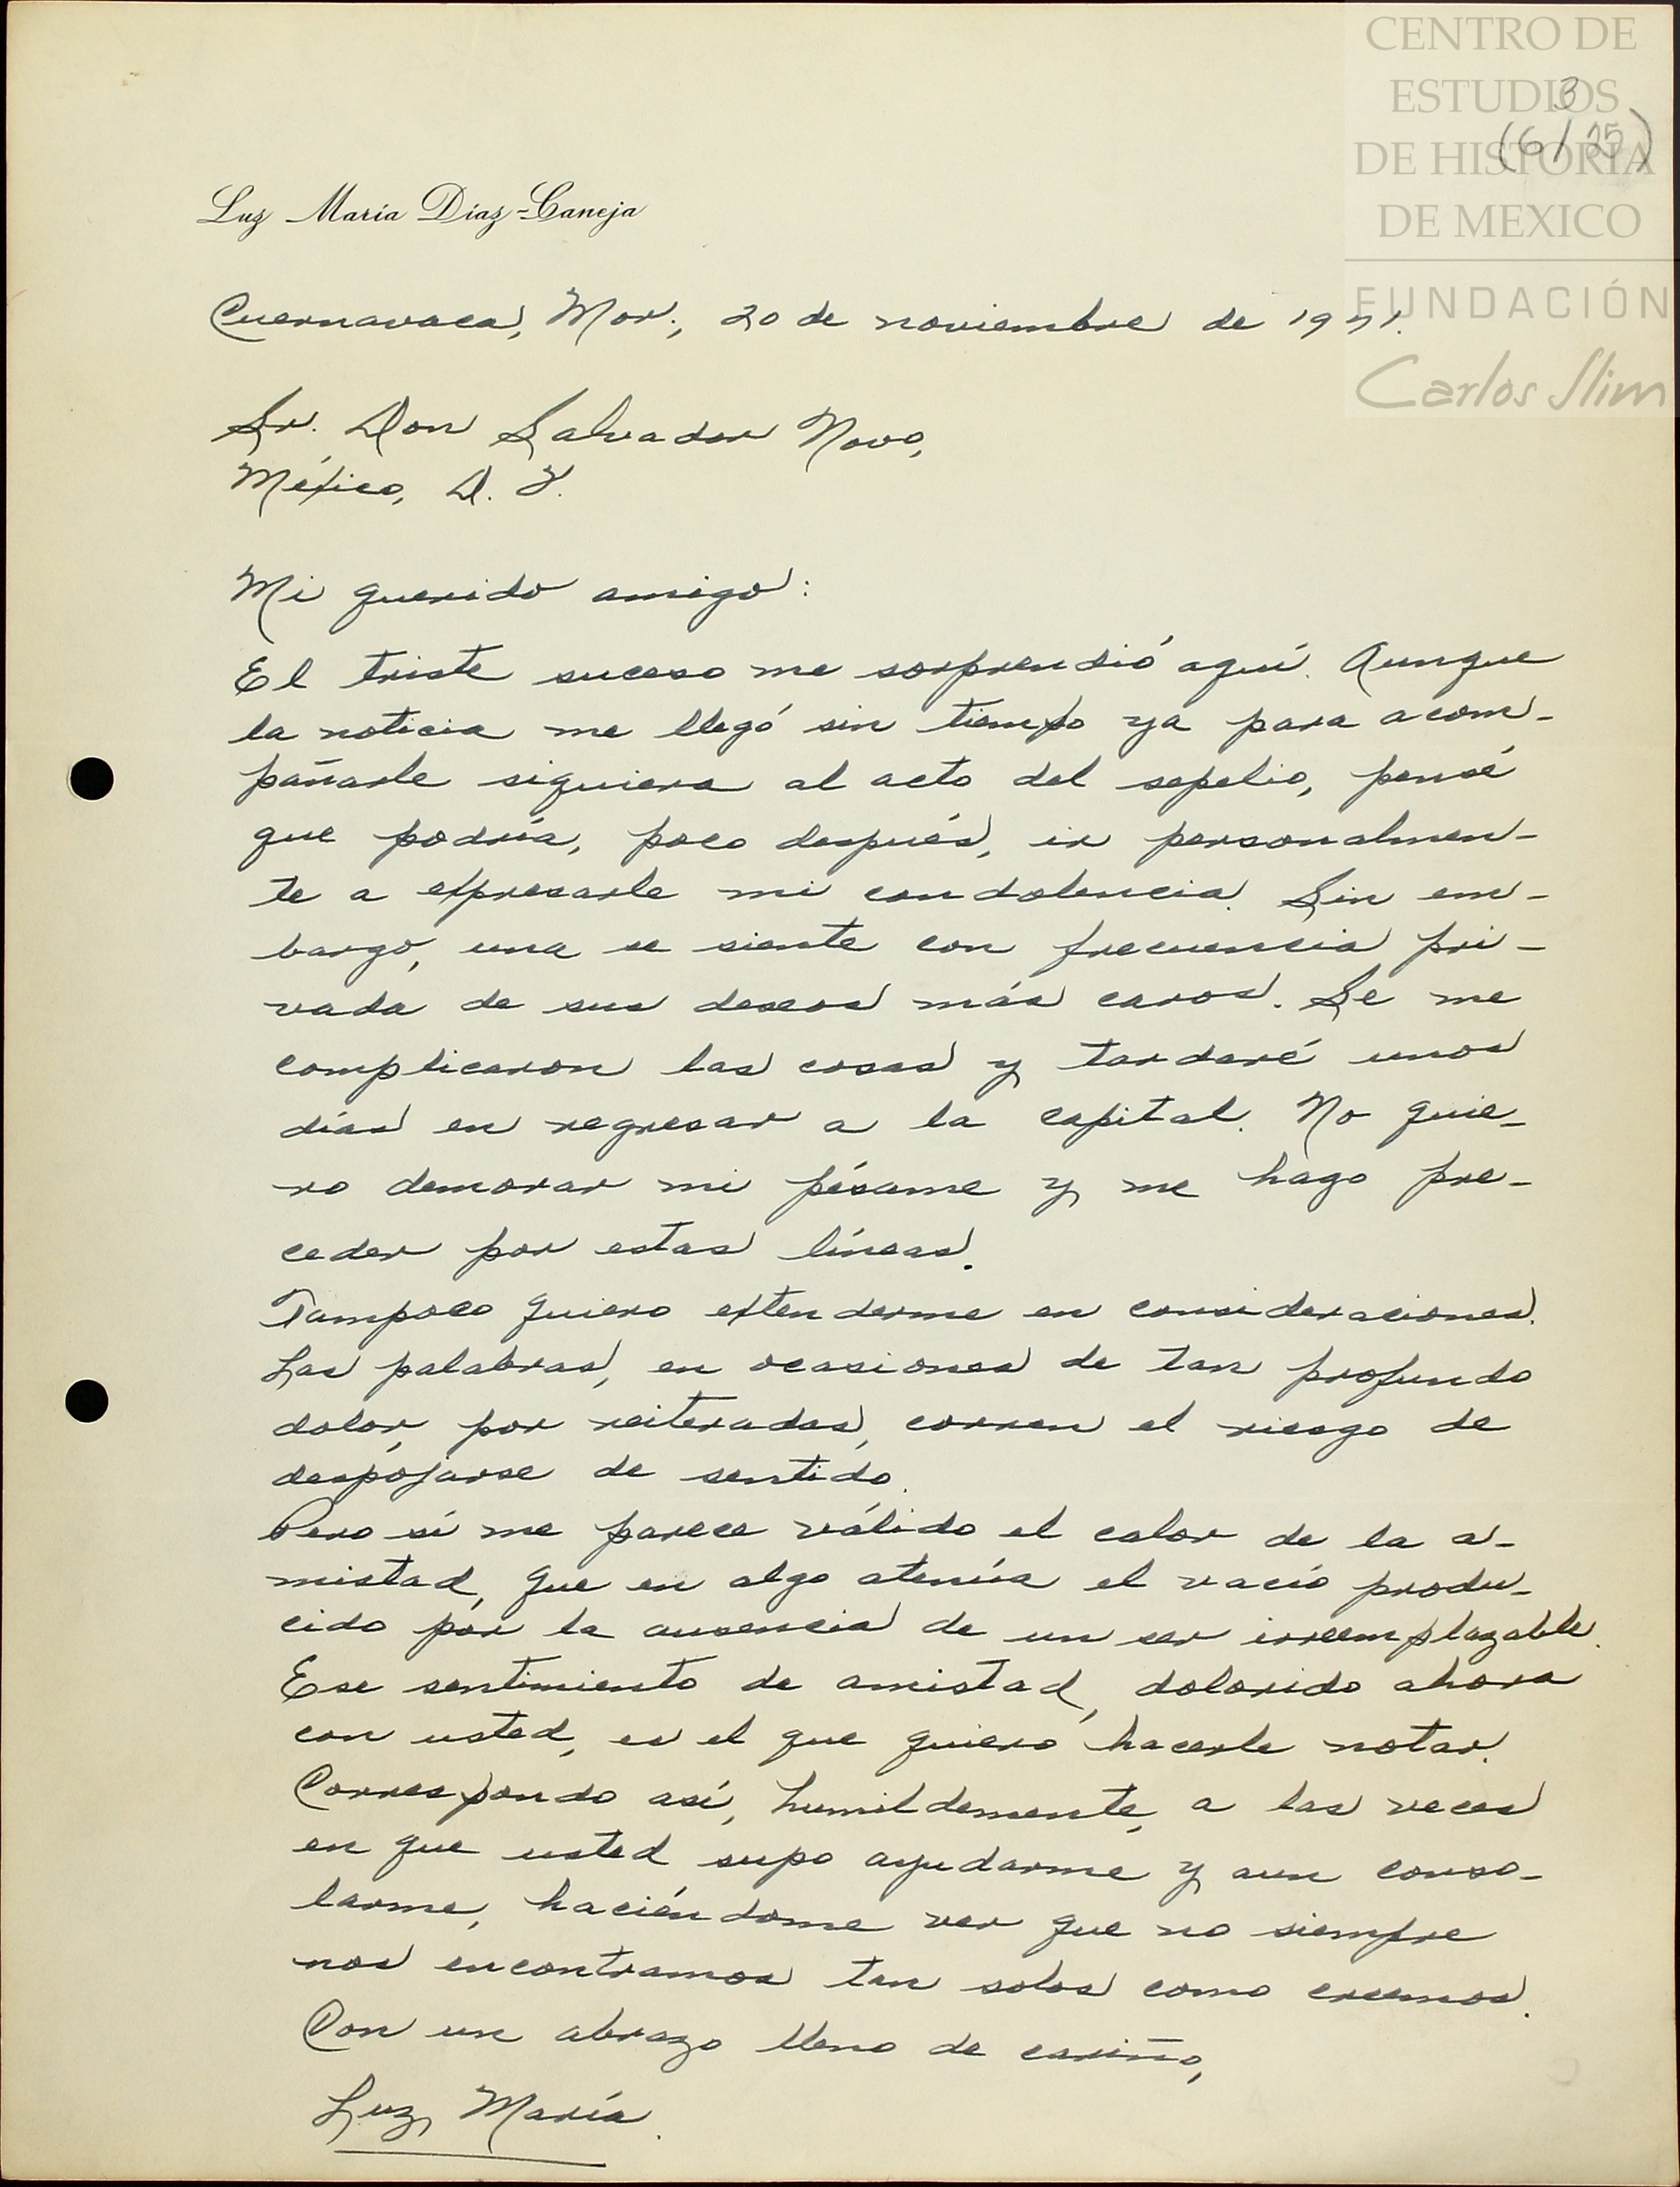 CENTRO DE
ESTUDIOS
DE HISTORIA
DE MEXICO
FUNDACIÓN
Carlos Slim
3
(6/25)
Luz María Díaz-Caneja
Cuernavaca, Mor., 20 de noviembre de 1951.
Sr. Don Salvador Novo,
México, D. F.
Mi querido amigo:
El triste suceso me sorprendió aquí. Aunque
la noticia me llegó sin tiempo ya para acom-
pañarle siquiera al acto del sepelio, pensé
que podría, poco después, ir personalmen-
te a expresarle mi condolencia. Sin em-
bargo, una se siente con frecuencia pri-
vada de sus deseos más caros. Se me
complicaron las cosas y tardaré unos
días en regresar a la capital. No quie-
ro demorar mi pésame y me hago pre-
ceder por estas líneas.
Tampoco quiero extenderme en consideraciones.
Las palabras, en ocasiones de tan profundo
dolor, por reiteradas, corren el riesgo de
despojarse de sentido.
Pero sí me parece válido el calor de la a-
mistad, que en algo atenúa el vacío produ-
cido por la ausencia de un ser irreemplazable.
Ese sentimiento de amistad, dolorido ahora
con usted, es el que quiero hacerle notar.
Correspondo así, humildemente, a las veces
en que usted supo ayudarme y aun conso-
larme, haciéndome ver que no siempre
nos encontramos tan solos como creemos.
Con un abrazo lleno de cariño,
Luz María.